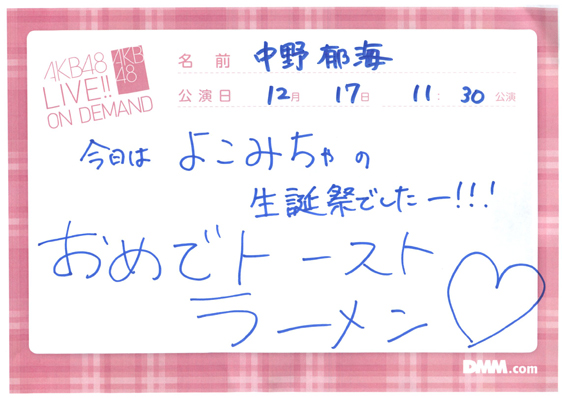 AKB48
LIVE!!
ON DEMAND
AKB
48
名前 中野郁海
公演日 12月 17日 11:30公演
今日は よこみちゃの
生誕祭でしたー!!!
おめでトースト
ラーメン♡
DMM.com